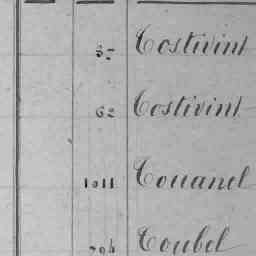 37 Costivint
62 Costivint
1011 Couanel
704 Coubel